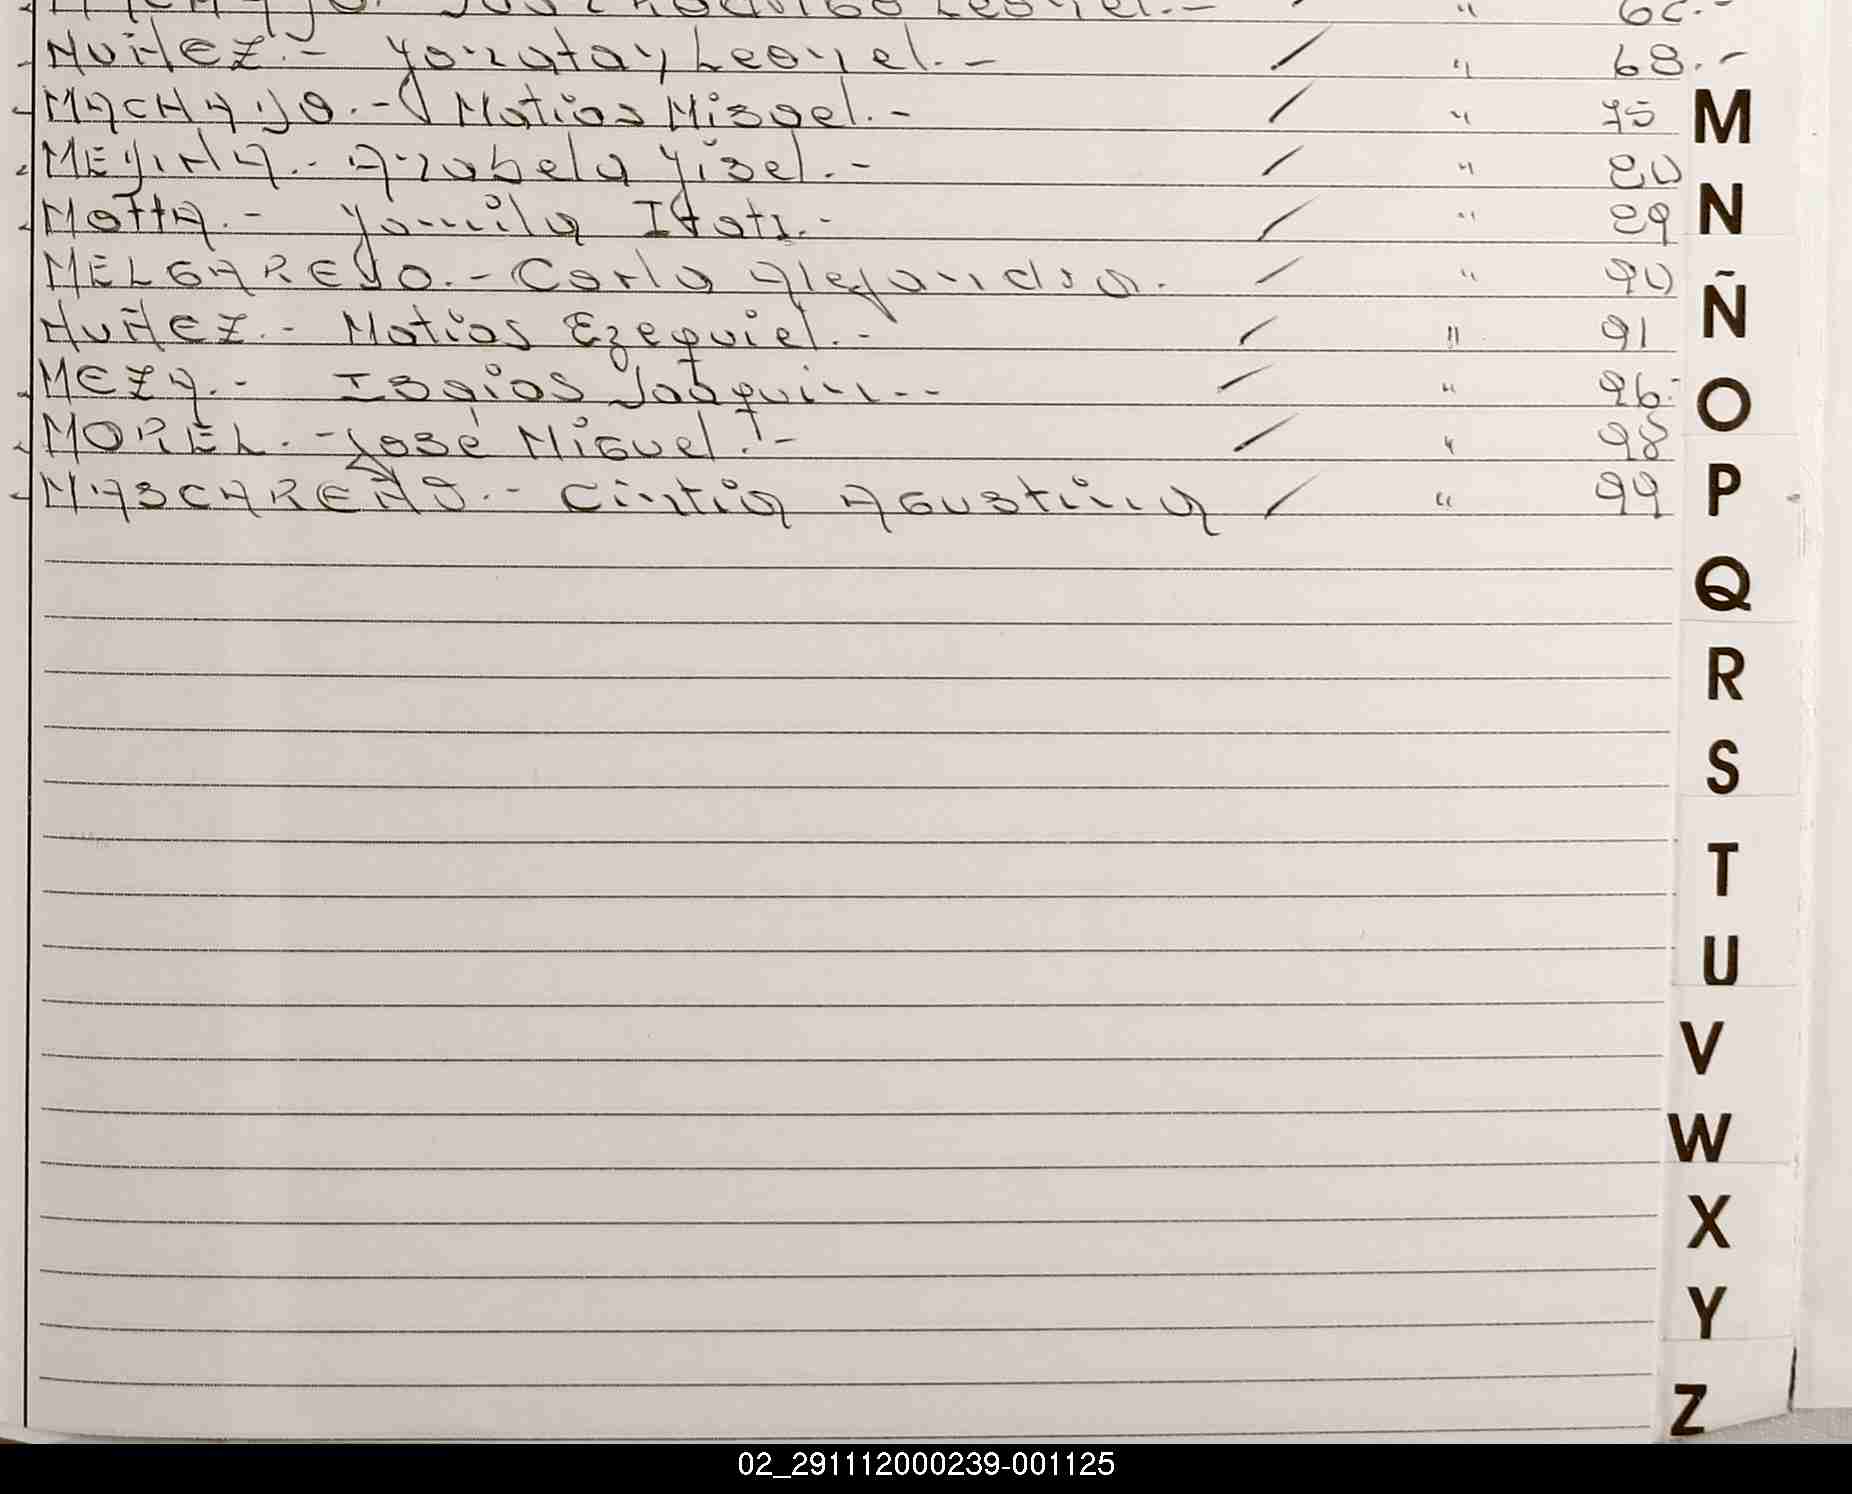 NUÑEZ.- Jonatan Leonel.- / " 68.-
MACHAJO.- Matias Misael.- / " 75
MEJINA.- Anabela Yisel.- / " 80
MOTTA.- Yamila Itati.- / " 89
MELGAREJO.- Carla Alejandra. / " 90
NUÑEZ.- Matias Ezequiel.- / " 91
MEZA.- Isaias Joaquin.- / " 96.-
MOREL.- José Miguel.- / " 98
MASCAREÑO.- Cintia Agustina / " 99
M
N
Ñ
O
P
Q
R
S
T
U
V
W
X
Y
Z
02_291112000239-001125